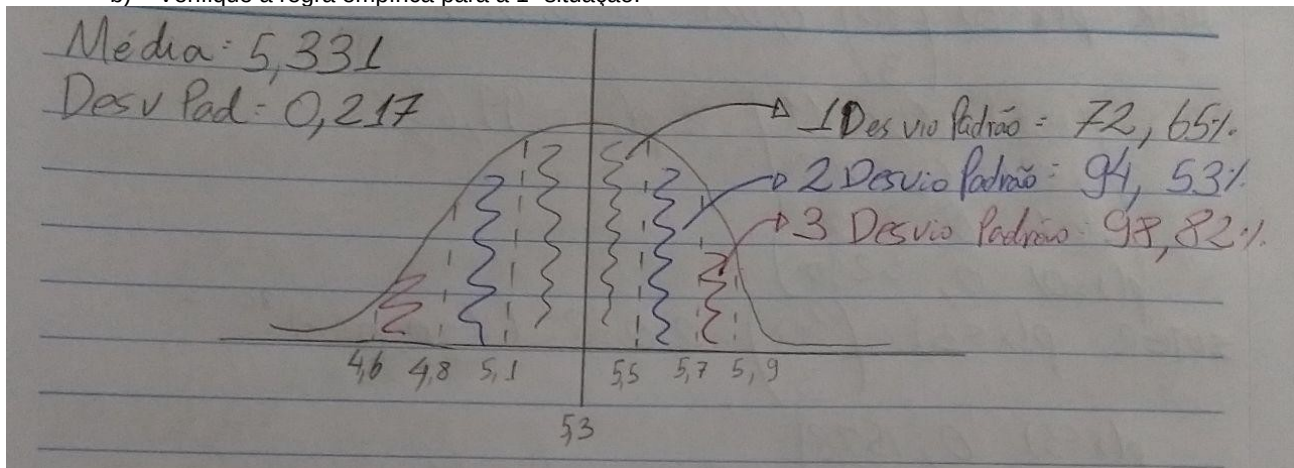 b) Verifique a regra empírica para a 1ª situação.
Média: 5,331
Desv Pad: 0,217
1 Desvio Padrão = 72,65%
2 Desvio Padrão = 94,53%
3 Desvio Padrão 98,82%
4,6 4,8 5,1 5,5 5,7 5,9
5,3